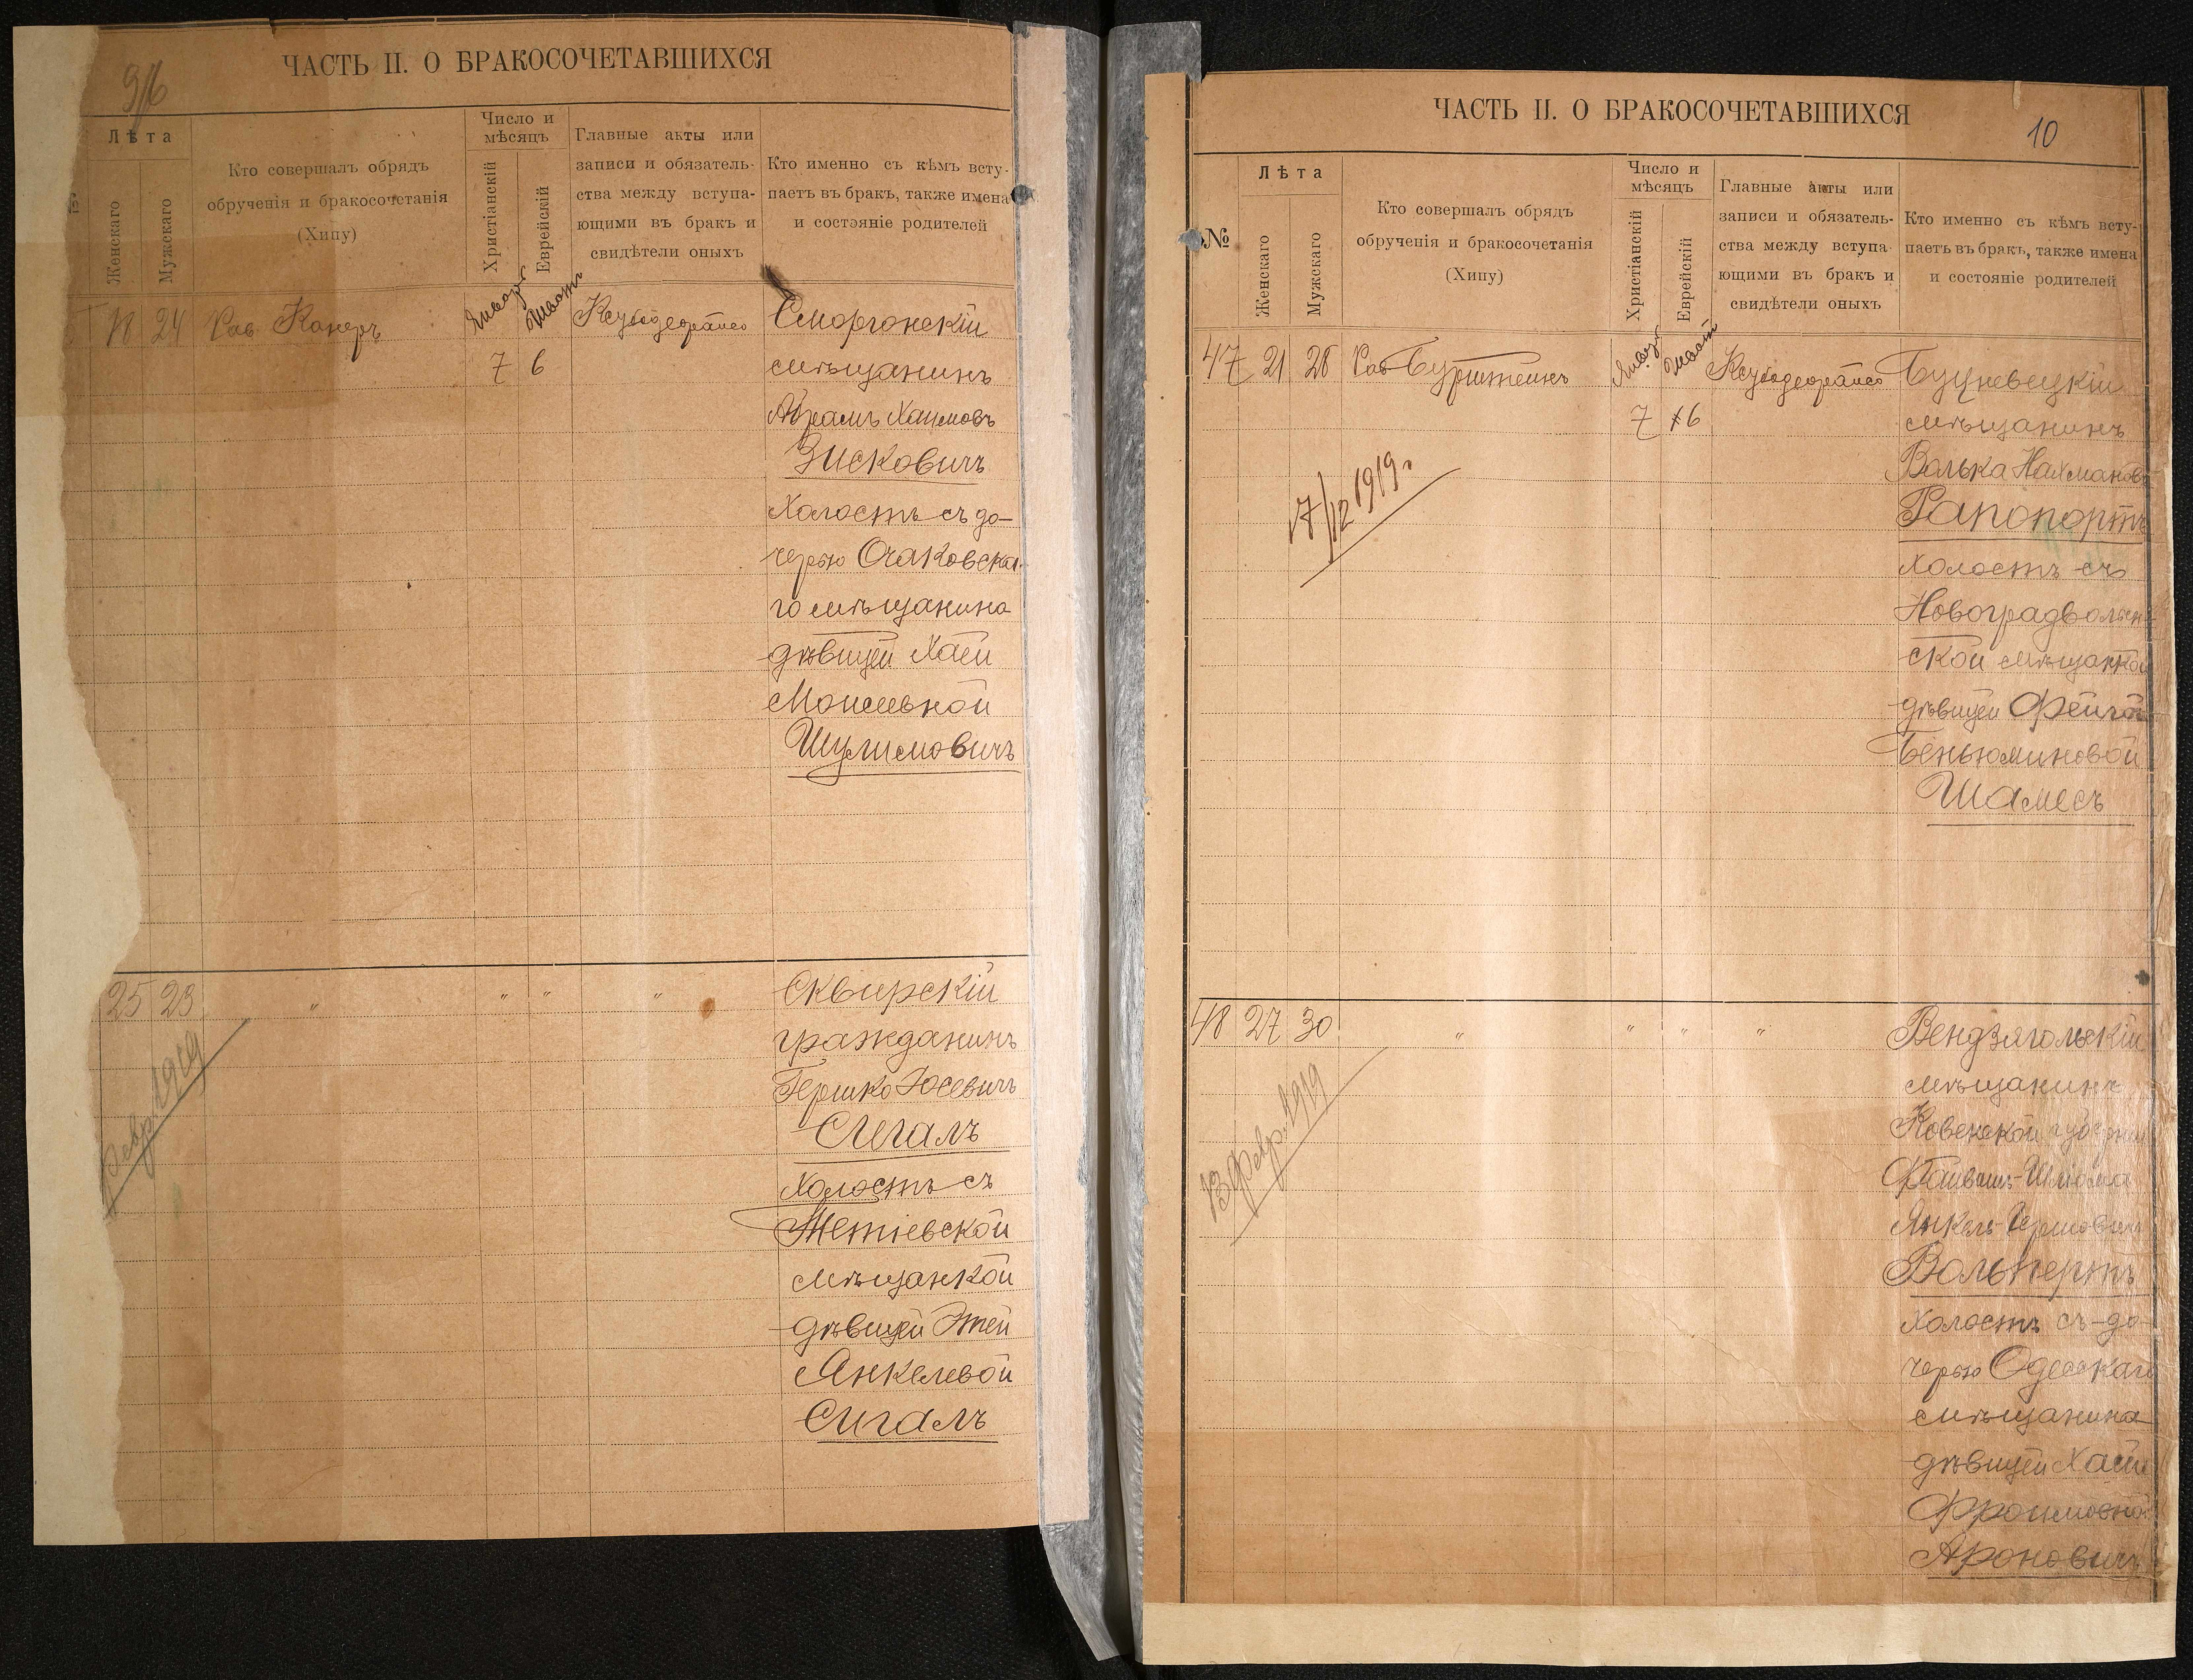 9/б
ЧАСТЬ II. О БРАКОСОЧЕТАВШИХСЯ
Лѣта
Женскаго
Мужскаго
Кто совершалъ обрядъ
обрученія и бракосочетанія
(Хипу)
Число и
мѣсяцъ
Христіанскій
Еврейскій
Главные акты или
записи и обязатель-
ства между вступа-
ющими въ бракъ и
свидѣтели оныхъ
Кто именно съ кѣмъ всту-
паетъ въ бракъ, также имена
и состояніе родителей
18 24 Рав. Канеръ
Январ Шват
7 6
Сморгонскій
мѣщанинъ
Абрамъ Хаимовъ
Зисковичъ
Холостъ съ до-
черью Очаковска-
го мѣщанина
дѣвицей Хаей
Моисеевной
Шулимовичъ
25 23 " " " "
Сквирскій
гражданинъ
Гершко Іосевичъ
Сигалъ
Холостъ съ
Тетіевской
мѣщанкой
дѣвицей Этей
Янкелевой
Сигалъ
Февр. 1919
ЧАСТЬ II. О БРАКОСОЧЕТАВШИХСЯ
10
№
Лѣта
Женскаго
Мужскаго
Кто совершалъ обрядъ
обрученія и бракосочетанія
(Хипу)
Число и
мѣсяцъ
Христіанскій
Еврейскій
Главные акты или
записи и обязатель-
ства между вступа-
ющими въ бракъ и
свидѣтели оныхъ
Кто именно съ кѣмъ всту-
паетъ въ бракъ, также имена
и состояніе родителей
47 21 28 Рав. Бурштейнъ
Январ Шват
7 6
17/12 1919 г
Буцневецкій
мѣщанинъ
Волька Нахмановъ
Рапопортъ
Холостъ съ
Новоградволын-
ской мѣщанкой
дѣвицей Фейгой
Беньюминовой
Шамесъ
48 27 30 " " " "
13 Февр. 1919
Вендзягольскій
мѣщанинъ
Ковенской губерніи
Файвишъ-Шлюма
Янкель-Гершовичъ
Вольпертъ
Холостъ съ до-
черью Одесскаго
мѣщанина
дѣвицей Хаей
Фроимовной
Ароновичъ